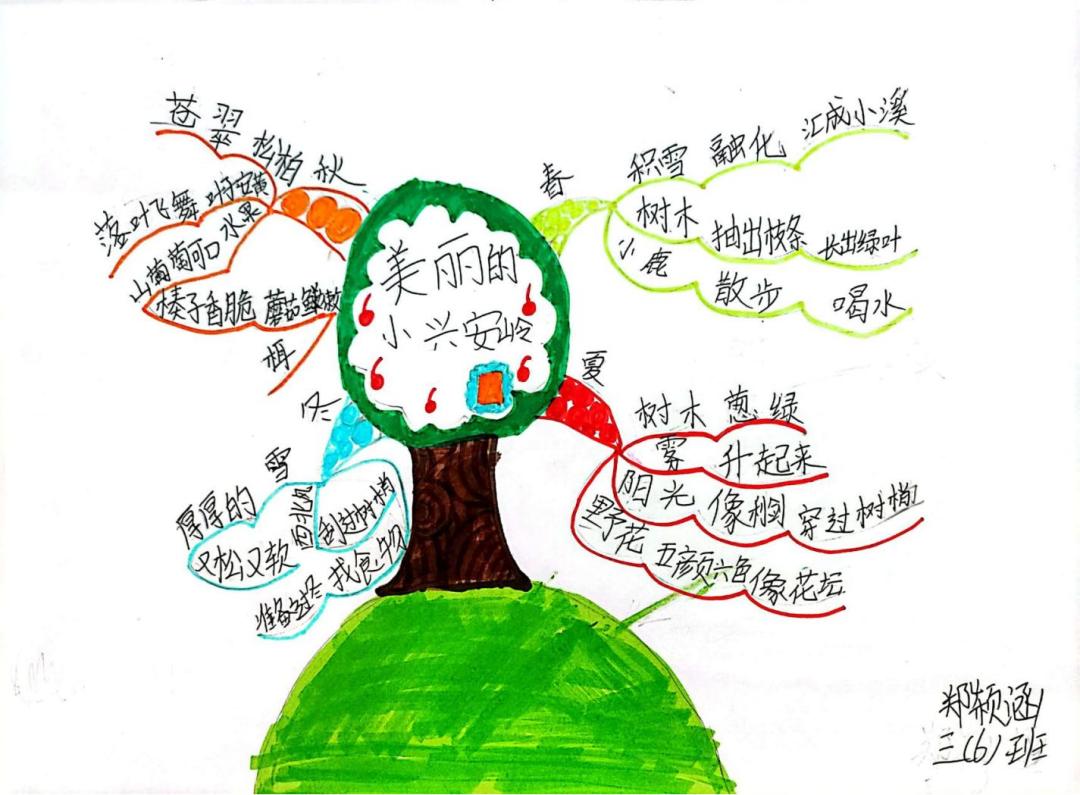 美丽的
小兴安岭
春
积雪 融化 汇成小溪
树木 抽出枝条 长出绿叶
小鹿 散步 喝水
夏
树木 葱绿
雾 升起来
阳光 像利剑 穿过树梢
野花 五颜六色 像花坛
秋
松柏 苍翠
落叶飞舞
水果
山葡萄可口
榛子香脆 蘑菇鲜嫩
冬
雪
厚厚的
又松又软
西北风
刮过树梢
找食物
准备过冬
郑颖涵
三(6)班